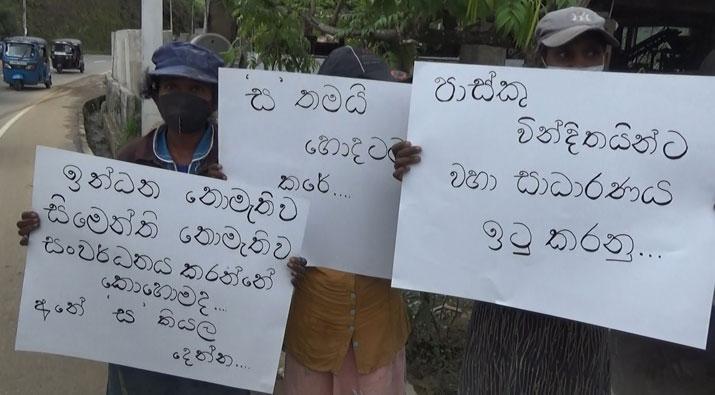 ඉන්ධන නොමැතිව
සිමෙන්ති නොමැතිව
සංවර්ධනය කරන්නේ
කොහොමද...
අනේ 'ස' කියල
දෙන්න...
'ස' තමයි
හොදටම
කරේ....
පාස්කු
වින්දිතයින්ට
වහා සාධාරණය
ඉටු කරනු...